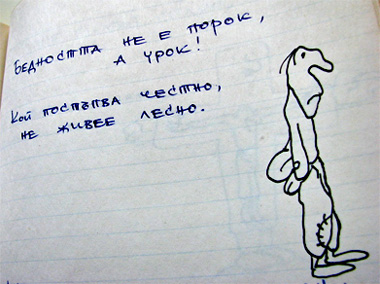 Бедността не е порок,
а урок!
Кой постъпва честно,
не живее лесно.